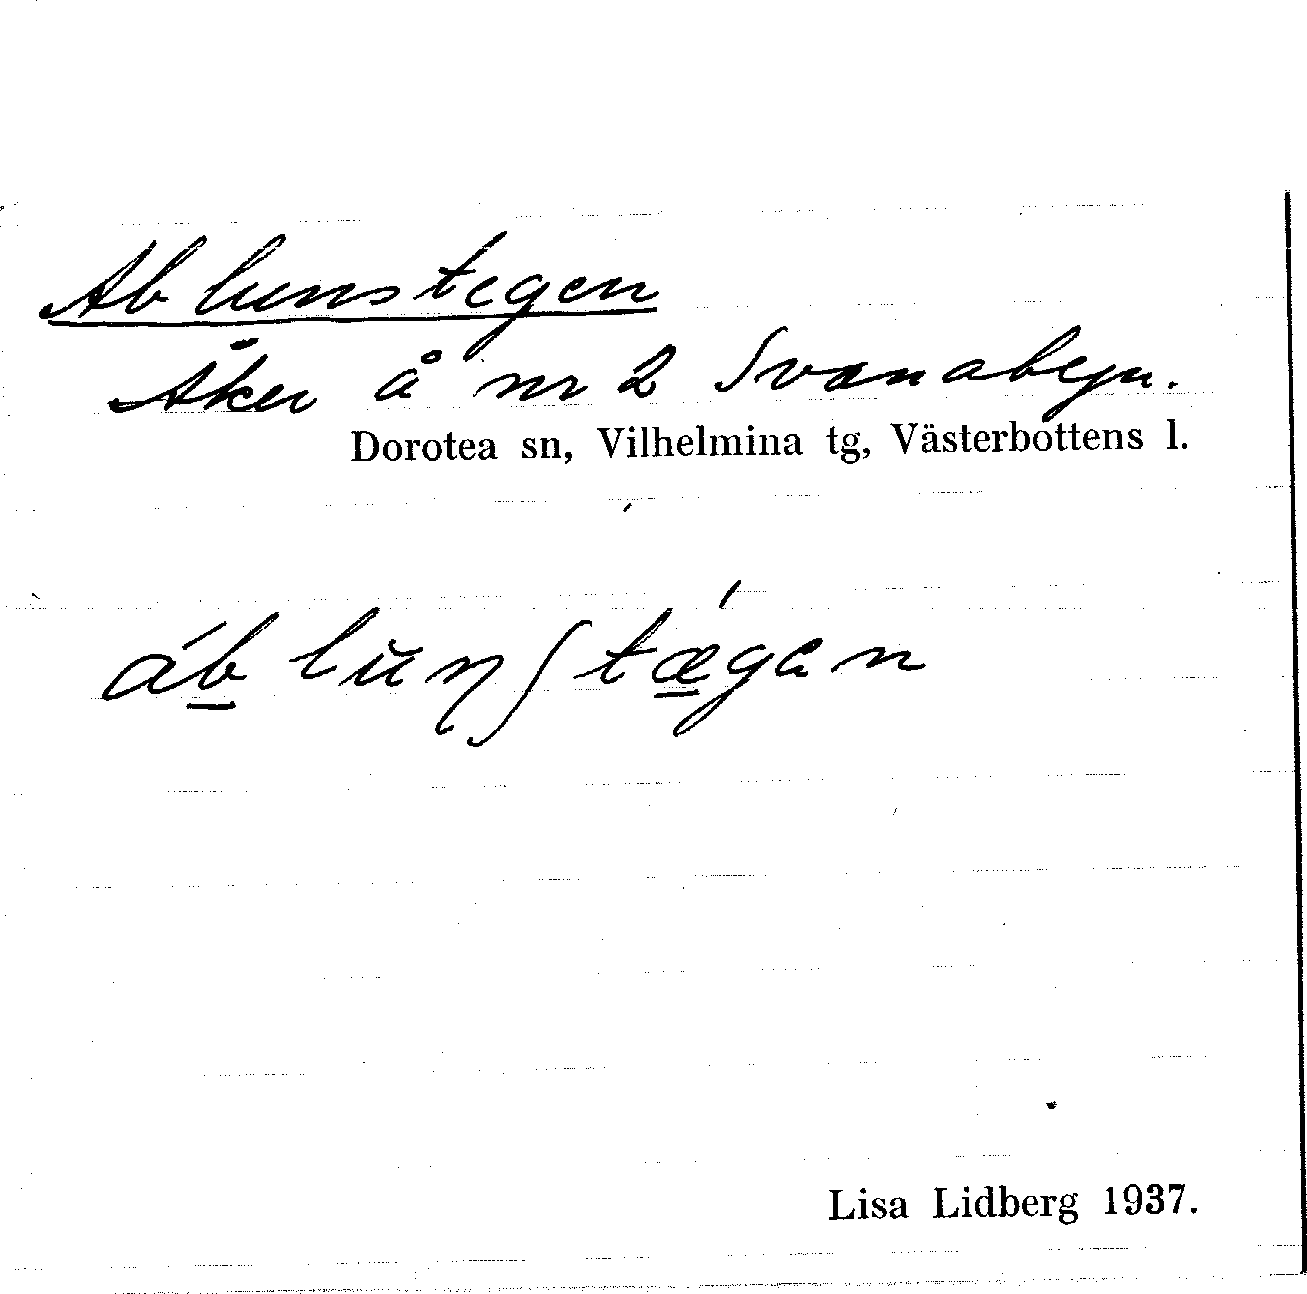 Ablunstegen
Åker å nr 2 Svanabyn.
Dorotea sn, Vilhelmina tg, Västerbottens l.
áb̲lŭŋʃtǽ̲gan
Lisa Lidberg 1937.